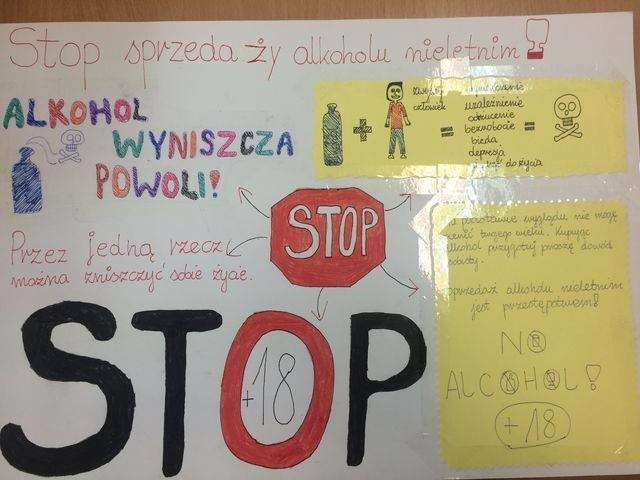 Stop sprzeda ży alkoholu nieletnim!
ALKOHOL
WYNISZCZA
POWOLI!
+ = =
człowiek
uzależnienie
odtrucenie
bezrobocie
bieda
depresja
do życia
STOP
Przez jedną rzecz
można zniszczyć sobie życie.
podstawie wyglądu nie mogę
twojego wieku. Kupując
alkohol przygotuj proszę dowód
osobisty.
sprzedaż alkoholu nieletnim
jest przestępstwem!
NO
ALCOHOL!
+18
STOP
+18